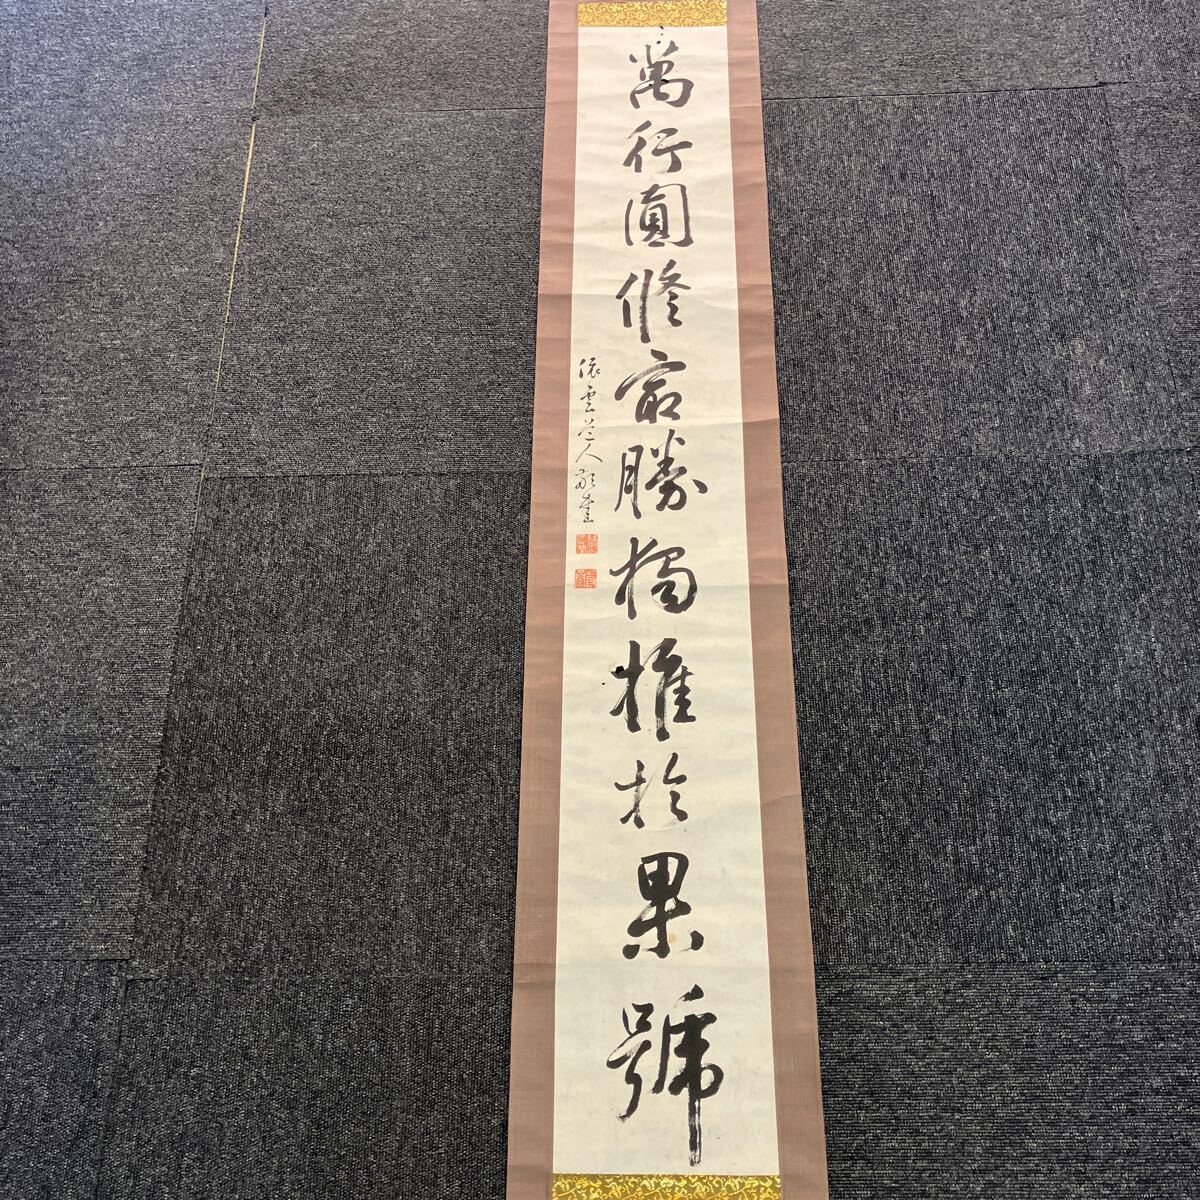 萬行圓修最勝獨推於果號
依雲道人